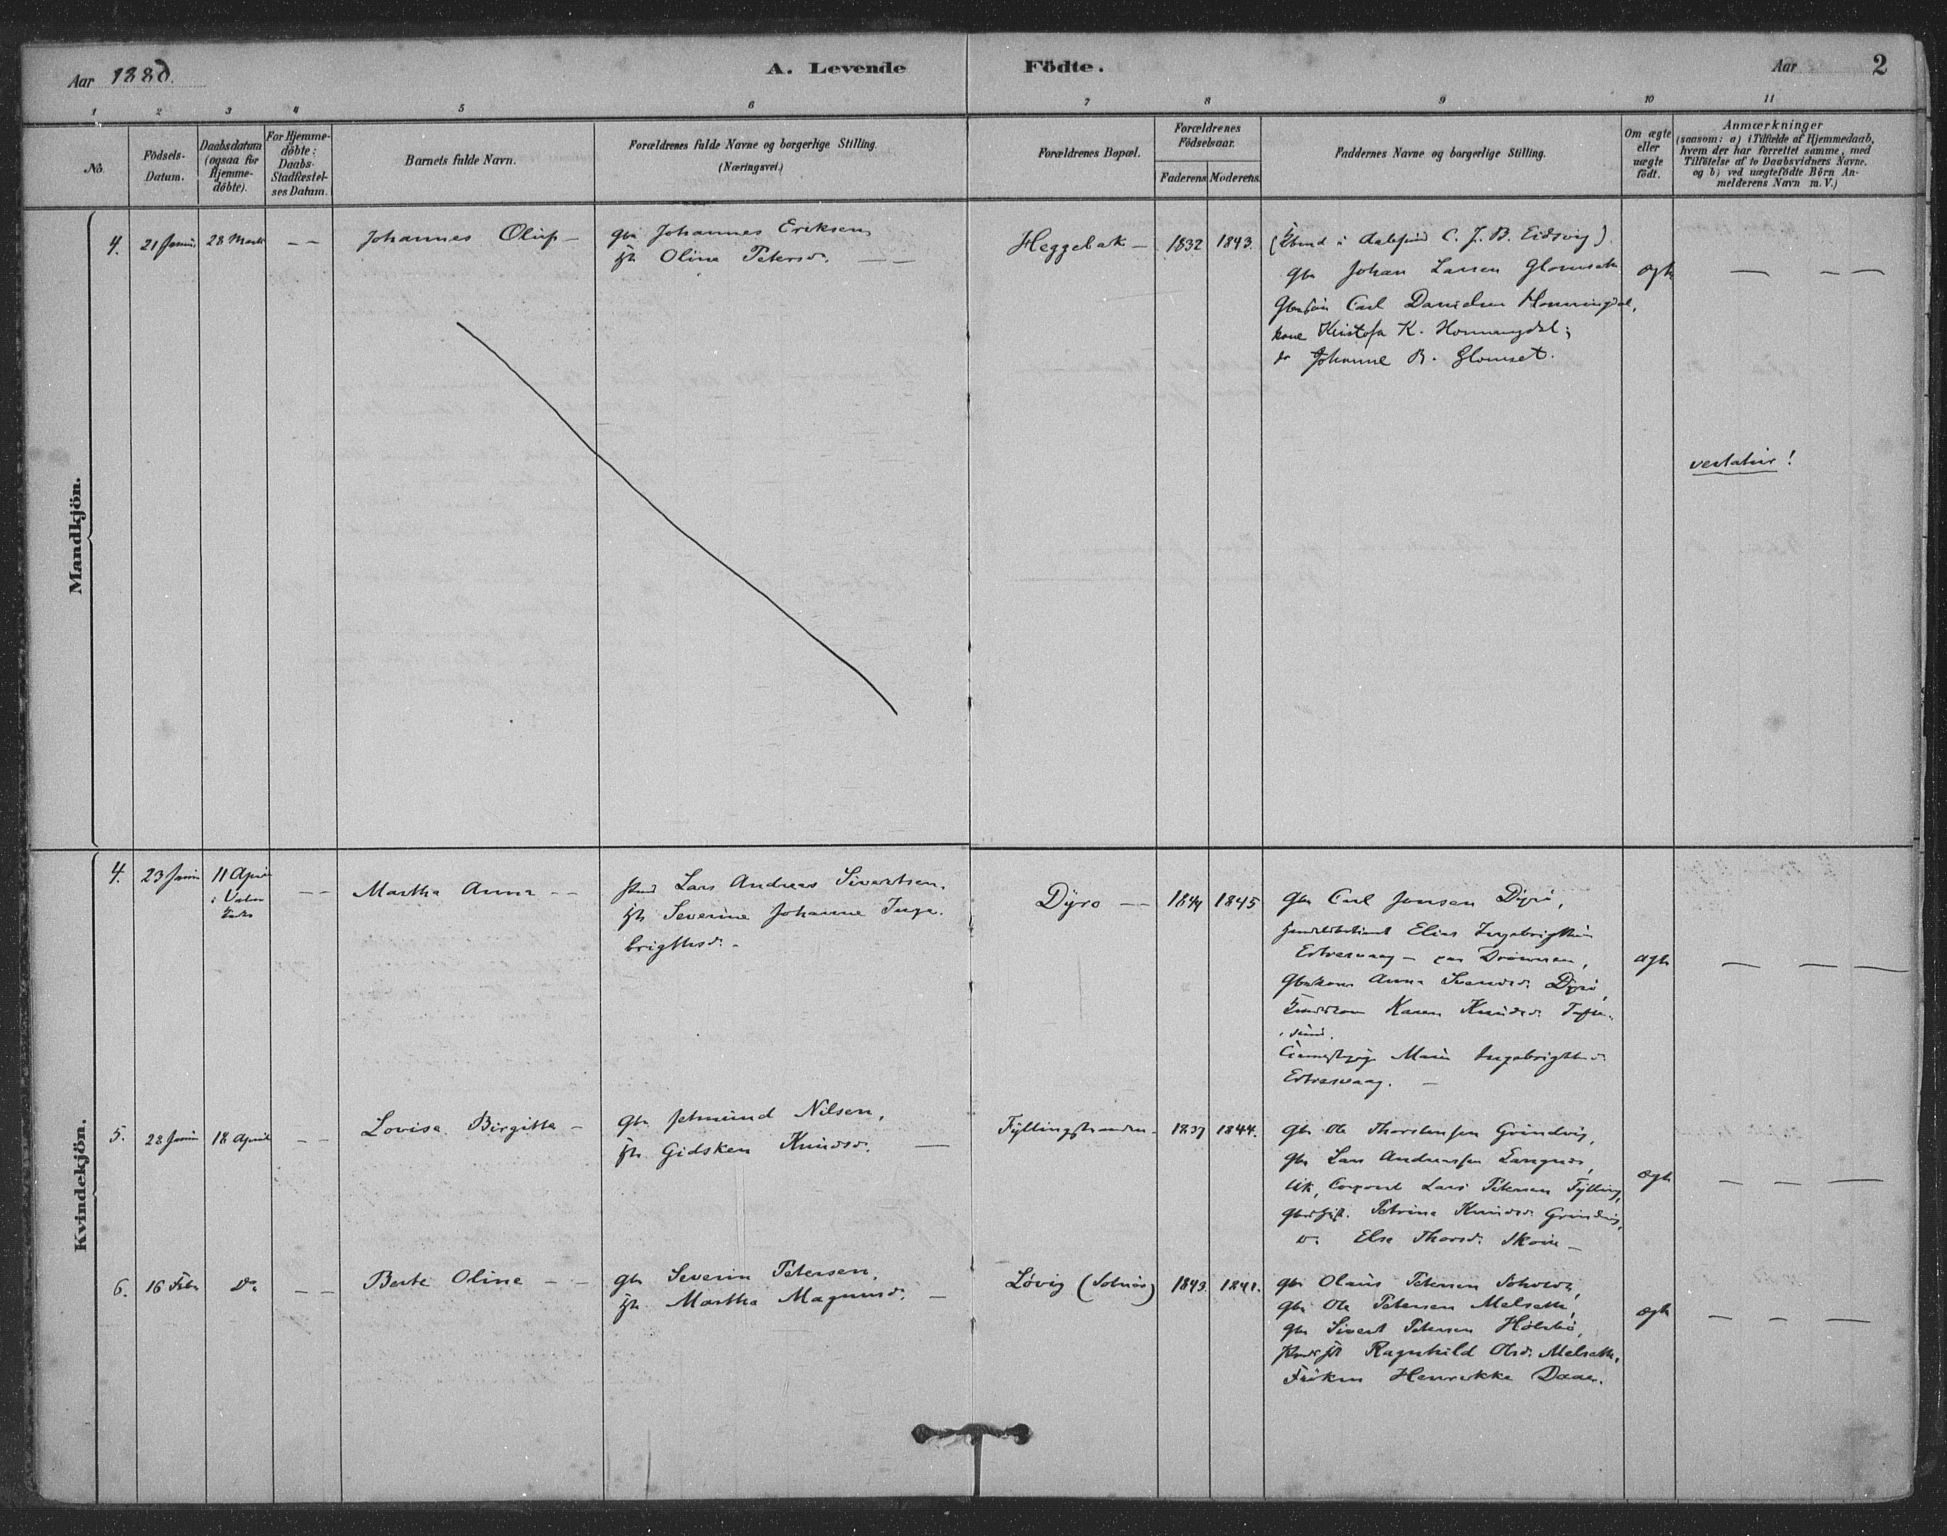 Aar 1880.
A. Levende Födte.
Aar
2
1 2 3 4 5 6 7 8 9 10 11
No.
Födsels-Datum.
Daabsdatum (ogsaa for Hjemme-döbte).
For Hjemme-döbte: Daabs-Stadfæstel-ses Datum.
Barnets fulde Navn.
Forældrenes fulde Navne og borgerlige Stilling. (Næringsvei.)
Forældrenes Bopæl.
Forældrenes Födselsaar.
Faderens. Moderens.
Faddernes Navne og borgerlige Stilling.
Om ægte eller uægte födt.
Anmærkninger
(saasom: a) i Tilfælde af Hjemmedaab,
hvem der har forrettet samme, med
Tilföielse af to Daabsvidners Navne.
og b) ved uægtefödte Börn An-
melderens Navn m. V.)
Mandkjön.
4. 21 Januar 28 Marts — — Johannes Oluf —
Gbr Johannes Eriksen,
h Oline Petersd. — —
Heggebak — 1832 1843.
( i Aalesund C. J. B. Eidsvig).
Gbr Johan Larsen Glomset
Carl Danielsen Honningdal,
kone K. Honningdal;
do Johanne B. Glomset.
ægte — — —
vertatur!
Kvindekjön.
4. 23 Januar 11 April i — — Martha Anna — —
Lars Andreas Sivertsen.
h Severine Johanne Inge-
brigtsd. —
Dyrö — — 1844 1845
Gbr Carl Jonsen Dyrö,
Elias Ingebrigtsen
Anna Dyrö,
Karen Knudsd.
Ingebrigtsd.
ægte — — —
5. 28 Januar 18 April — — Lovise Birgitte —
Gbr Jetmund Nilsen,
h Gidsken Knudsd. —
Fyllingstranden — 1837 1844.
Gbr Ole Thorstensen Grindvig,
Gbr Lars Andreassen Langnes,
Lars Petersen Fylling,
Petrine Knudsd. Grindvig,
Else Thorsd.
ægte — — —
6. 16 Febr Do — — Berte Oline — —
Gbr Severin Petersen,
h Martha Magnusd. —
Løvig (Solnør) 1843. 1841.
Gbr Olaus Petersen
Gbr Ole Petersen Melseth,
Gbr Sivert Petersen
Ragnhild Olsd. Melseth,
Fröken Henrikke Daae.
ægte — — —